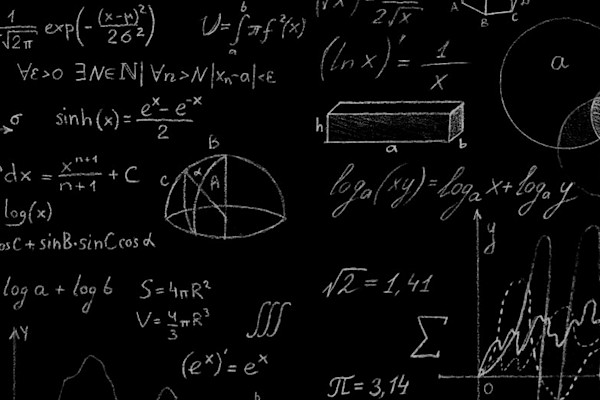 1/√2π exp(-(x-μ)²/2σ²)
U = ∫ₐᵇ πf²(x)
2√x
A B C
∀ε>0 ∃N∈ℕ| ∀n>N |xₙ-a|<ε
(ln x)' = 1/x
a
σ
sinh(x) = (eˣ - e⁻ˣ)/2
h a b
B
C α A
dx = xⁿ⁺¹/(n+1) + C
logₐ(xy) = logₐ x + logₐ y
log(x)
osC + sinB·sinC cos α
y
log a + log b
S = 4πR²
√2 = 1,41
V = 4/3 πR³
∭
Σ
y
(eˣ)' = eˣ
π = 3,14
0
b